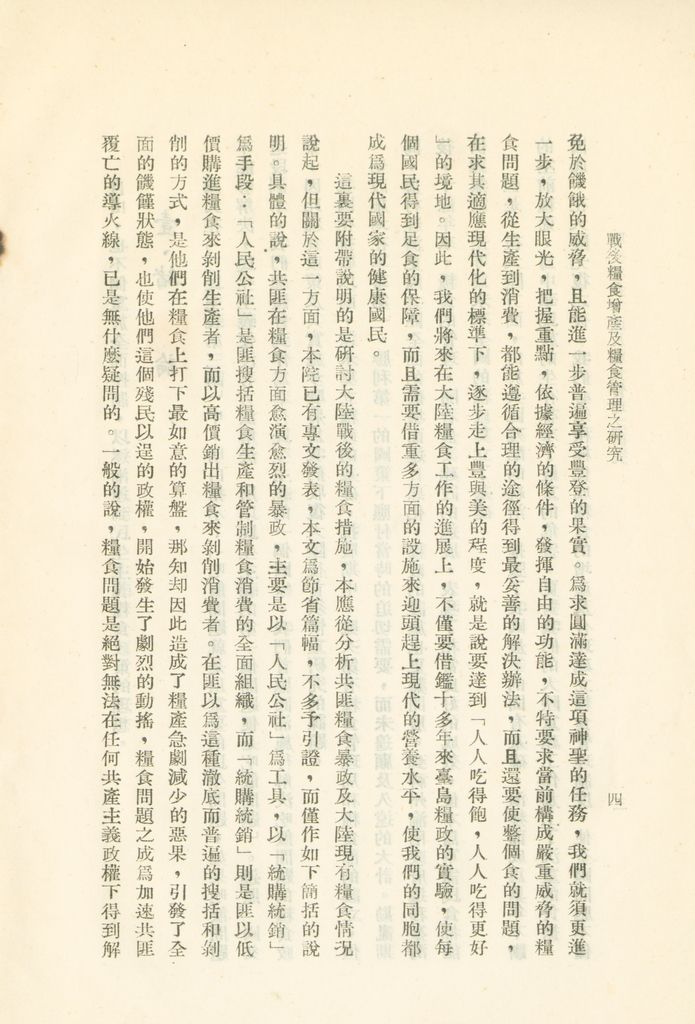 戰後糧食增產及糧食管理之研究
四
免於饑餓的威脅，且能進一步普遍享受豐登的果實。爲求圓滿達成這項神聖的任務，我們就須更進
一步，放大眼光，把握重點，依據經濟的條件，發揮自由的功能，不特要求當前構成嚴重威脅的糧
食問題，從生產到消費，都能遵循合理的途徑得到最妥善的解決辦法，而且還要使整個食的問題，
在求其適應現代化的標準下，逐步走上豐與美的程度，就是說要達到「人人吃得飽，人人吃得更好
」的境地。因此，我們將來在大陸糧食工作的進展上，不僅要借鑑十多年來臺島糧政的實驗，使每
個國民得到足食的保障，而且需要借重多方面的設施來迎頭趕上現代的營養水平，使我們的同胞都
成爲現代國家的健康國民。
這裏要附帶說明的是研討大陸戰後的糧食措施，本應從分析共匪糧食暴政及大陸現有糧食情况
說起，但關於這一方面，本院已有專文發表，本文爲節省篇幅，不多予引證，而僅作如下簡括的說
明。具體的說，共匪在糧食方面愈演愈烈的暴政，主要是以「人民公社」爲工具，以「統購統銷」
爲手段：「人民公社」是匪搜括糧食生產和管制糧食消費的全面組織，而「統購統銷」則是匪以低
價購進糧食來剝削生產者，而以高價銷出糧食來剝削消費者。在匪以爲這種澈底而普遍的搜括和剝
削的方式，是他們在糧食上打下最如意的算盤，那知却因此造成了糧產急劇減少的惡果，引發了全
面的饑饉狀態，也使他們這個殘民以逞的政權，開始發生了劇烈的動搖，糧食問題之成爲加速共匪
覆亡的導火線，已是無什麽疑問的。一般的說，糧食問題是絕對無法在任何共產主義政權下得到解